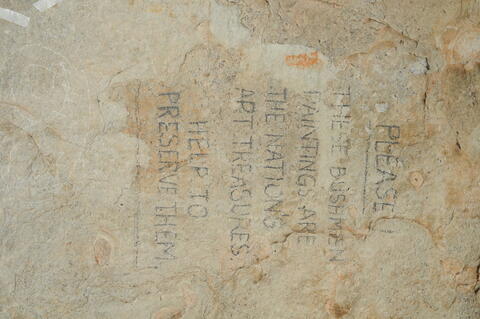 PLEASE!
THESE BUSHMEN
PAINTINGS ARE
THE NATION'S
ART TREASURES.
HELP TO
PRESERVE THEM.